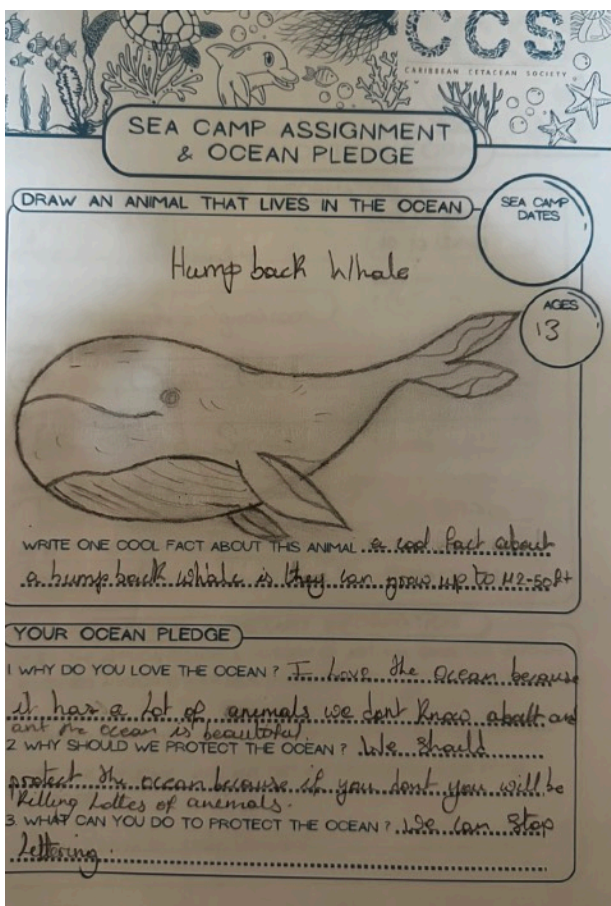 CCS
CARIBBEAN CETACEAN SOCIETY
SEA CAMP ASSIGNMENT
& OCEAN PLEDGE
DRAW AN ANIMAL THAT LIVES IN THE OCEAN
SEA CAMP
DATES
Humpback Whale
AGES
13
WRITE ONE COOL FACT ABOUT THIS ANIMAL a cool fact about
a humpback whale is they can grow up to 42-50ft
YOUR OCEAN PLEDGE
1 WHY DO YOU LOVE THE OCEAN? I Love the ocean because
it has a Lot of animals we dont know aboutt and
ant the ocean is beautiful.
2 WHY SHOULD WE PROTECT THE OCEAN? We should
protect the ocean because if you dont you will be
killing Lottes of anemals.
3. WHAT CAN YOU DO TO PROTECT THE OCEAN? We can stop
Lettering.